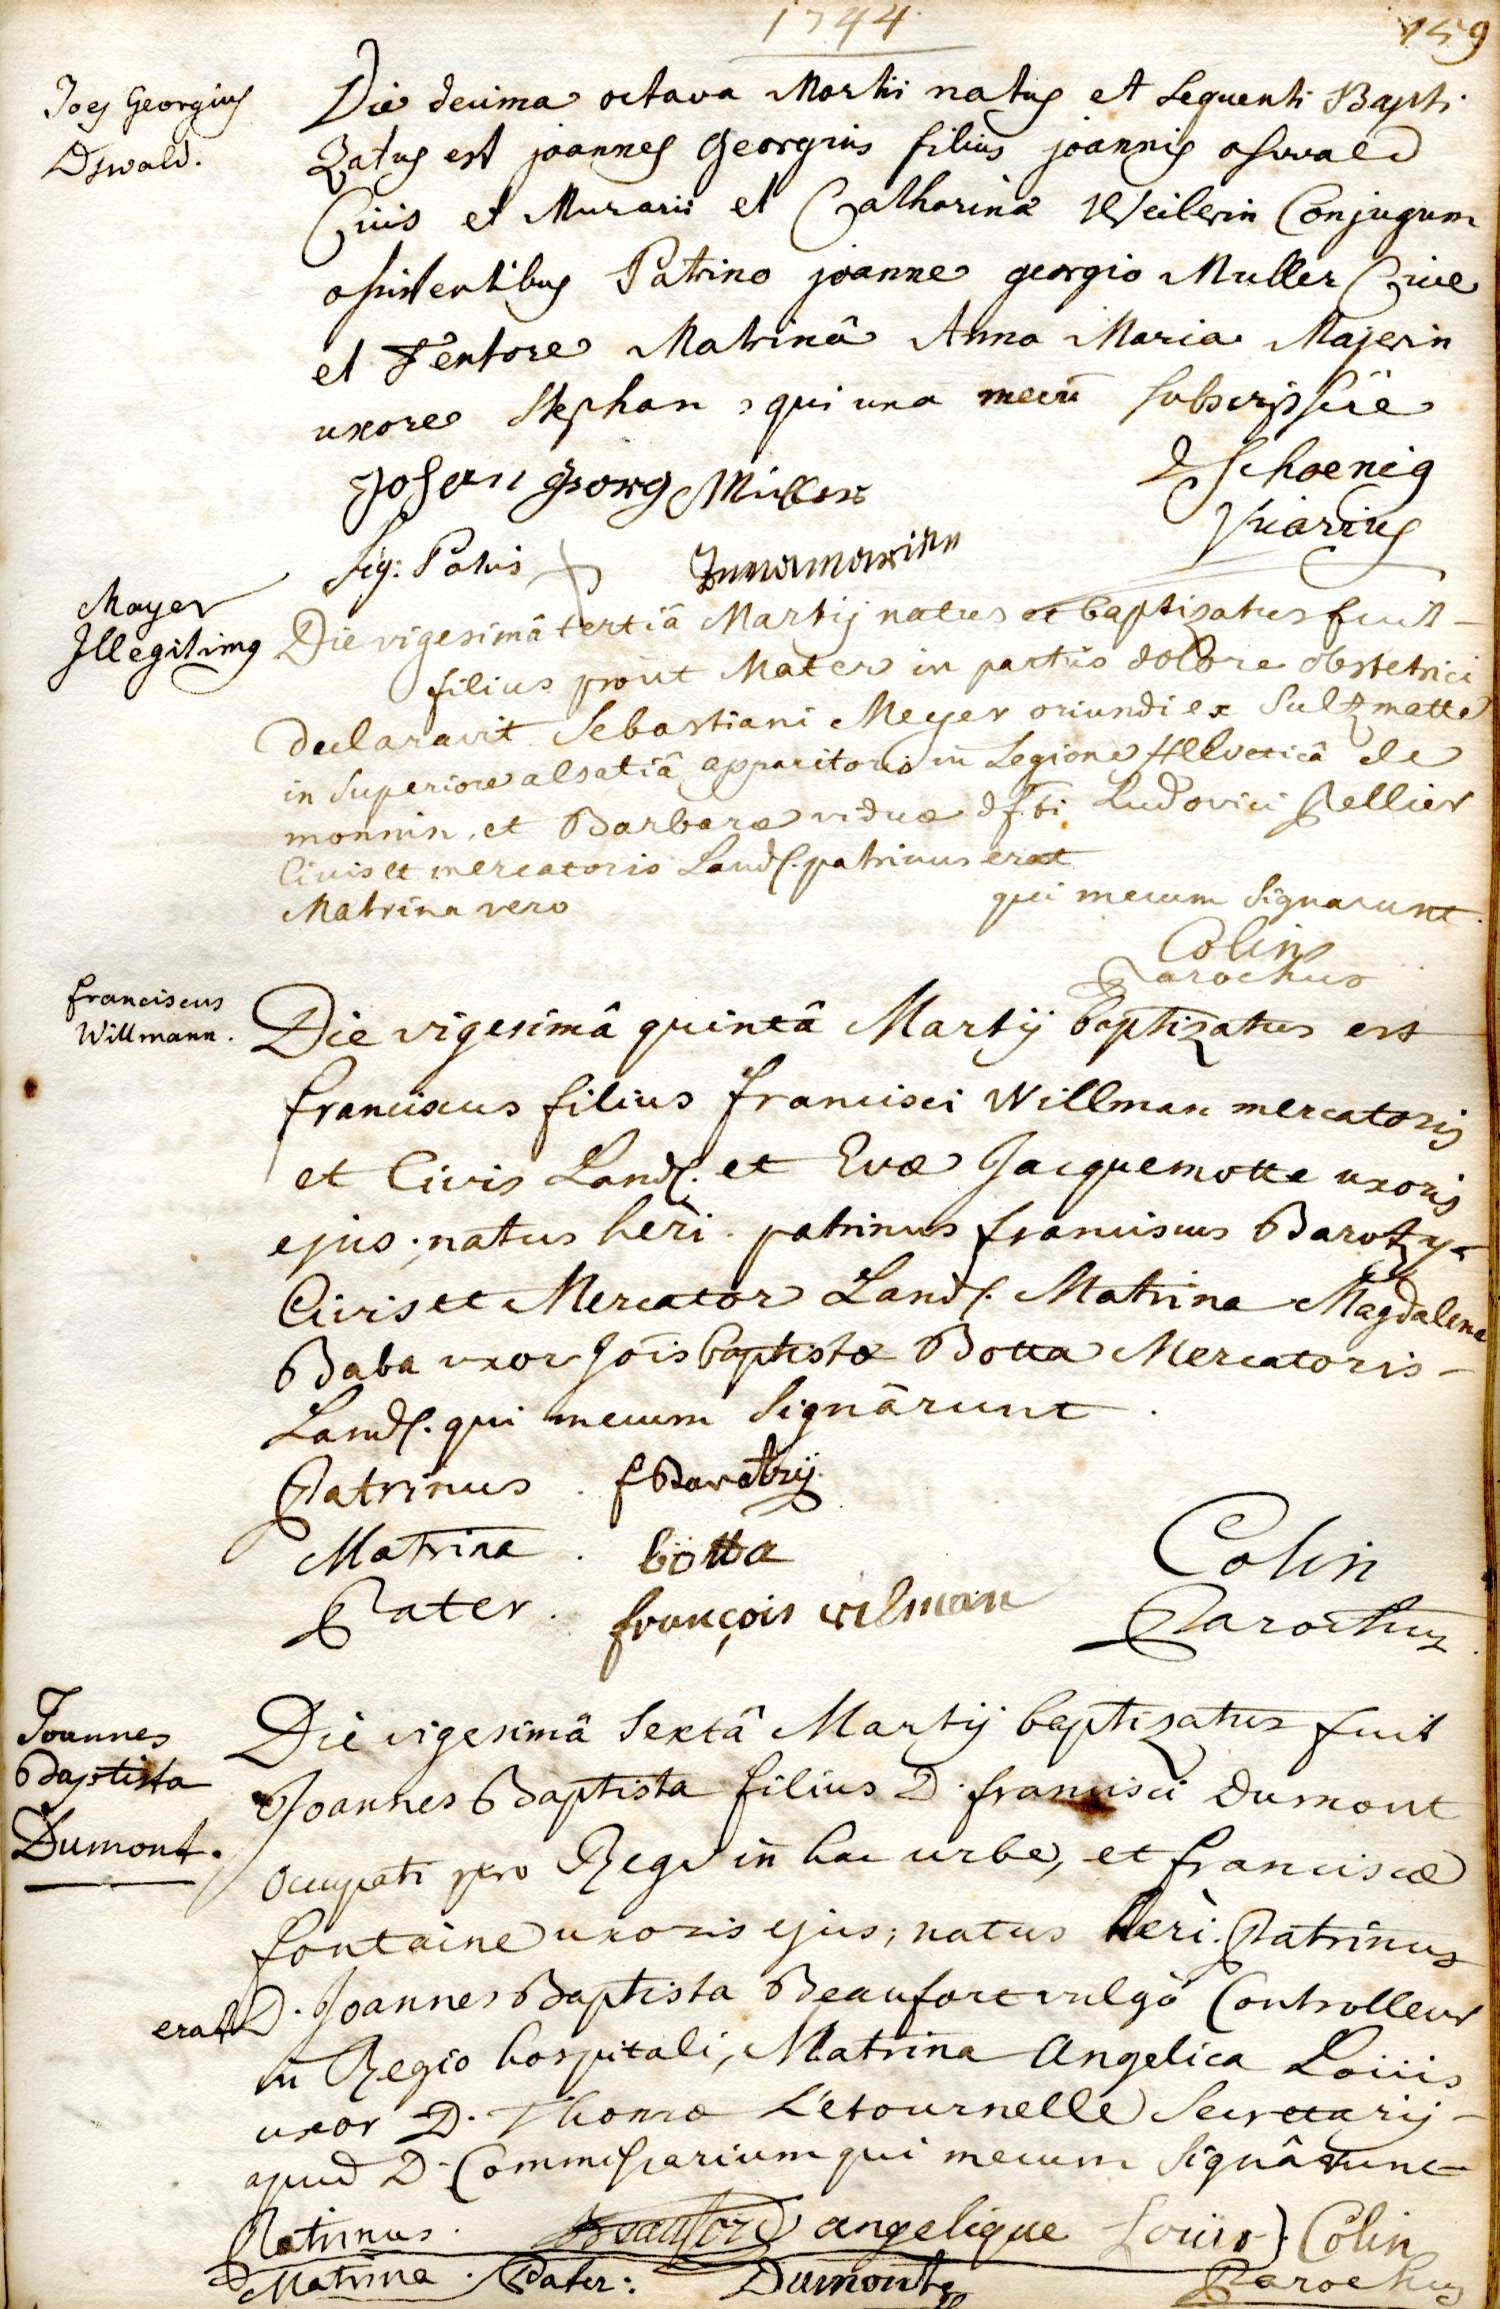 1744.
159
Joes Georgius
Oswald.
Die decima octava Martii natus et sequenti Bapti
Zatus est joannes Georgius filius joannis oswald
Civis et Murarii et Catharinæ Weilerin Conjugum
assistentibus Patrino joanne georgio Muller Cive
et Textore Matrinâ Anna Maria Majerin
uxore Stephan, qui una mecū subscripsere
Johan Georg Müller
Schoenig
Vicarius
Sig: Patris
Annamarian
Mayer
Illegitimg
Die vigesimâ tertiâ Martij natus et baptizatus fuit
filius prout Mater in partûs dolore obstetrici
declaravit Sebastiani Meyer oriundi ex Sulzmatte
in Superiore alsatiâ, apparitoris in Legione Hellveticâ de
monnin, et Barbaræ viduæ dfti Ludovici Pellier
Civis et mercatoris Land. patrinus erat
Matrina vero
qui mecum signarunt.
Colin
Parochus
franciscus
Willmann.
Die vigesimâ quintâ Martij baptizatus est
franciscus filius francisci Willman mercatoris
et Civis Land. et Evæ Jacquemotte uxoris
ejus; natus heri. patrinus franciscus Baratzy
Civis et Mercator Land. Matrina Magdalena
Baba uxor Jois baptistæ Botta Mercatoris
Land. qui mecum signârunt.
Patrinus. f Baratzy
Matrina. botta
Pater. françois wilman
Colin
Parochus
Joannes
Baptista
Dumont.
Die vigesimâ sextâ Martij baptizatus fuit
Joannes Baptista filius D. francisci Dumont
occupati pro Rege in hac urbe, et franciscæ
fontaine uxoris ejus; natus heri. Patrinus
erat D. Joannes Baptista Beaufort vulgò Controlleur
in Regio hospitali, Matrina Angelica Loüis
uxor D. Thomæ L'etournelle Secretarij
apud D. Commissarium qui mecum signârunt
Patrinus. Beauford angelique Loüis Colin
Matrina. Pater: Dumont Parochus